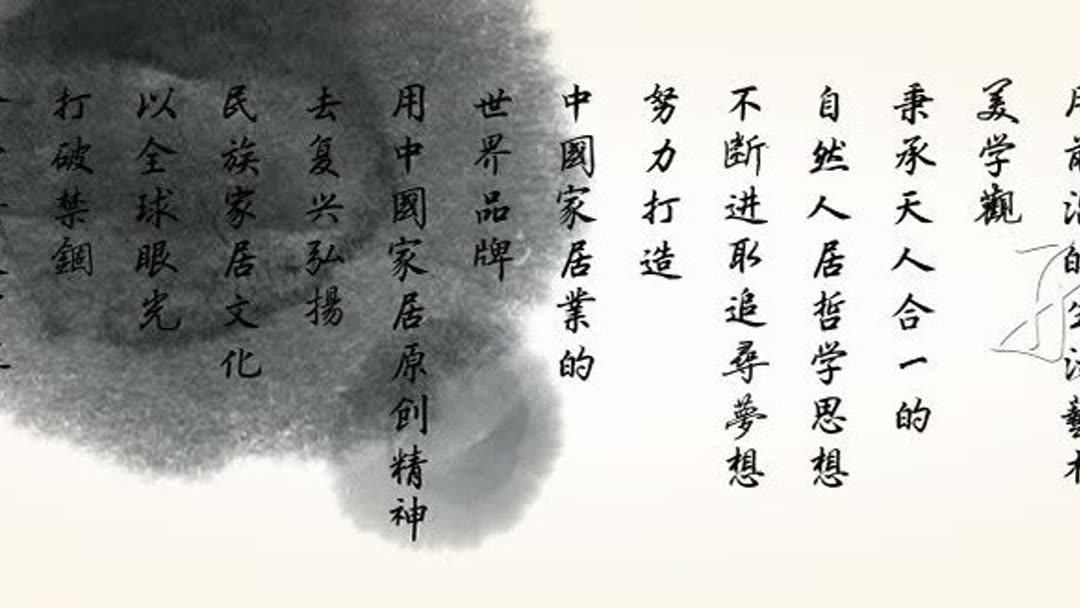 美学觀
秉承天人合一的
自然人居哲学思想
不断进取追尋夢想
努力打造
中國家居業的
世界品牌
用中國家居原创精神
去复兴弘揚
民族家居文化
以全球眼光
打破禁錮